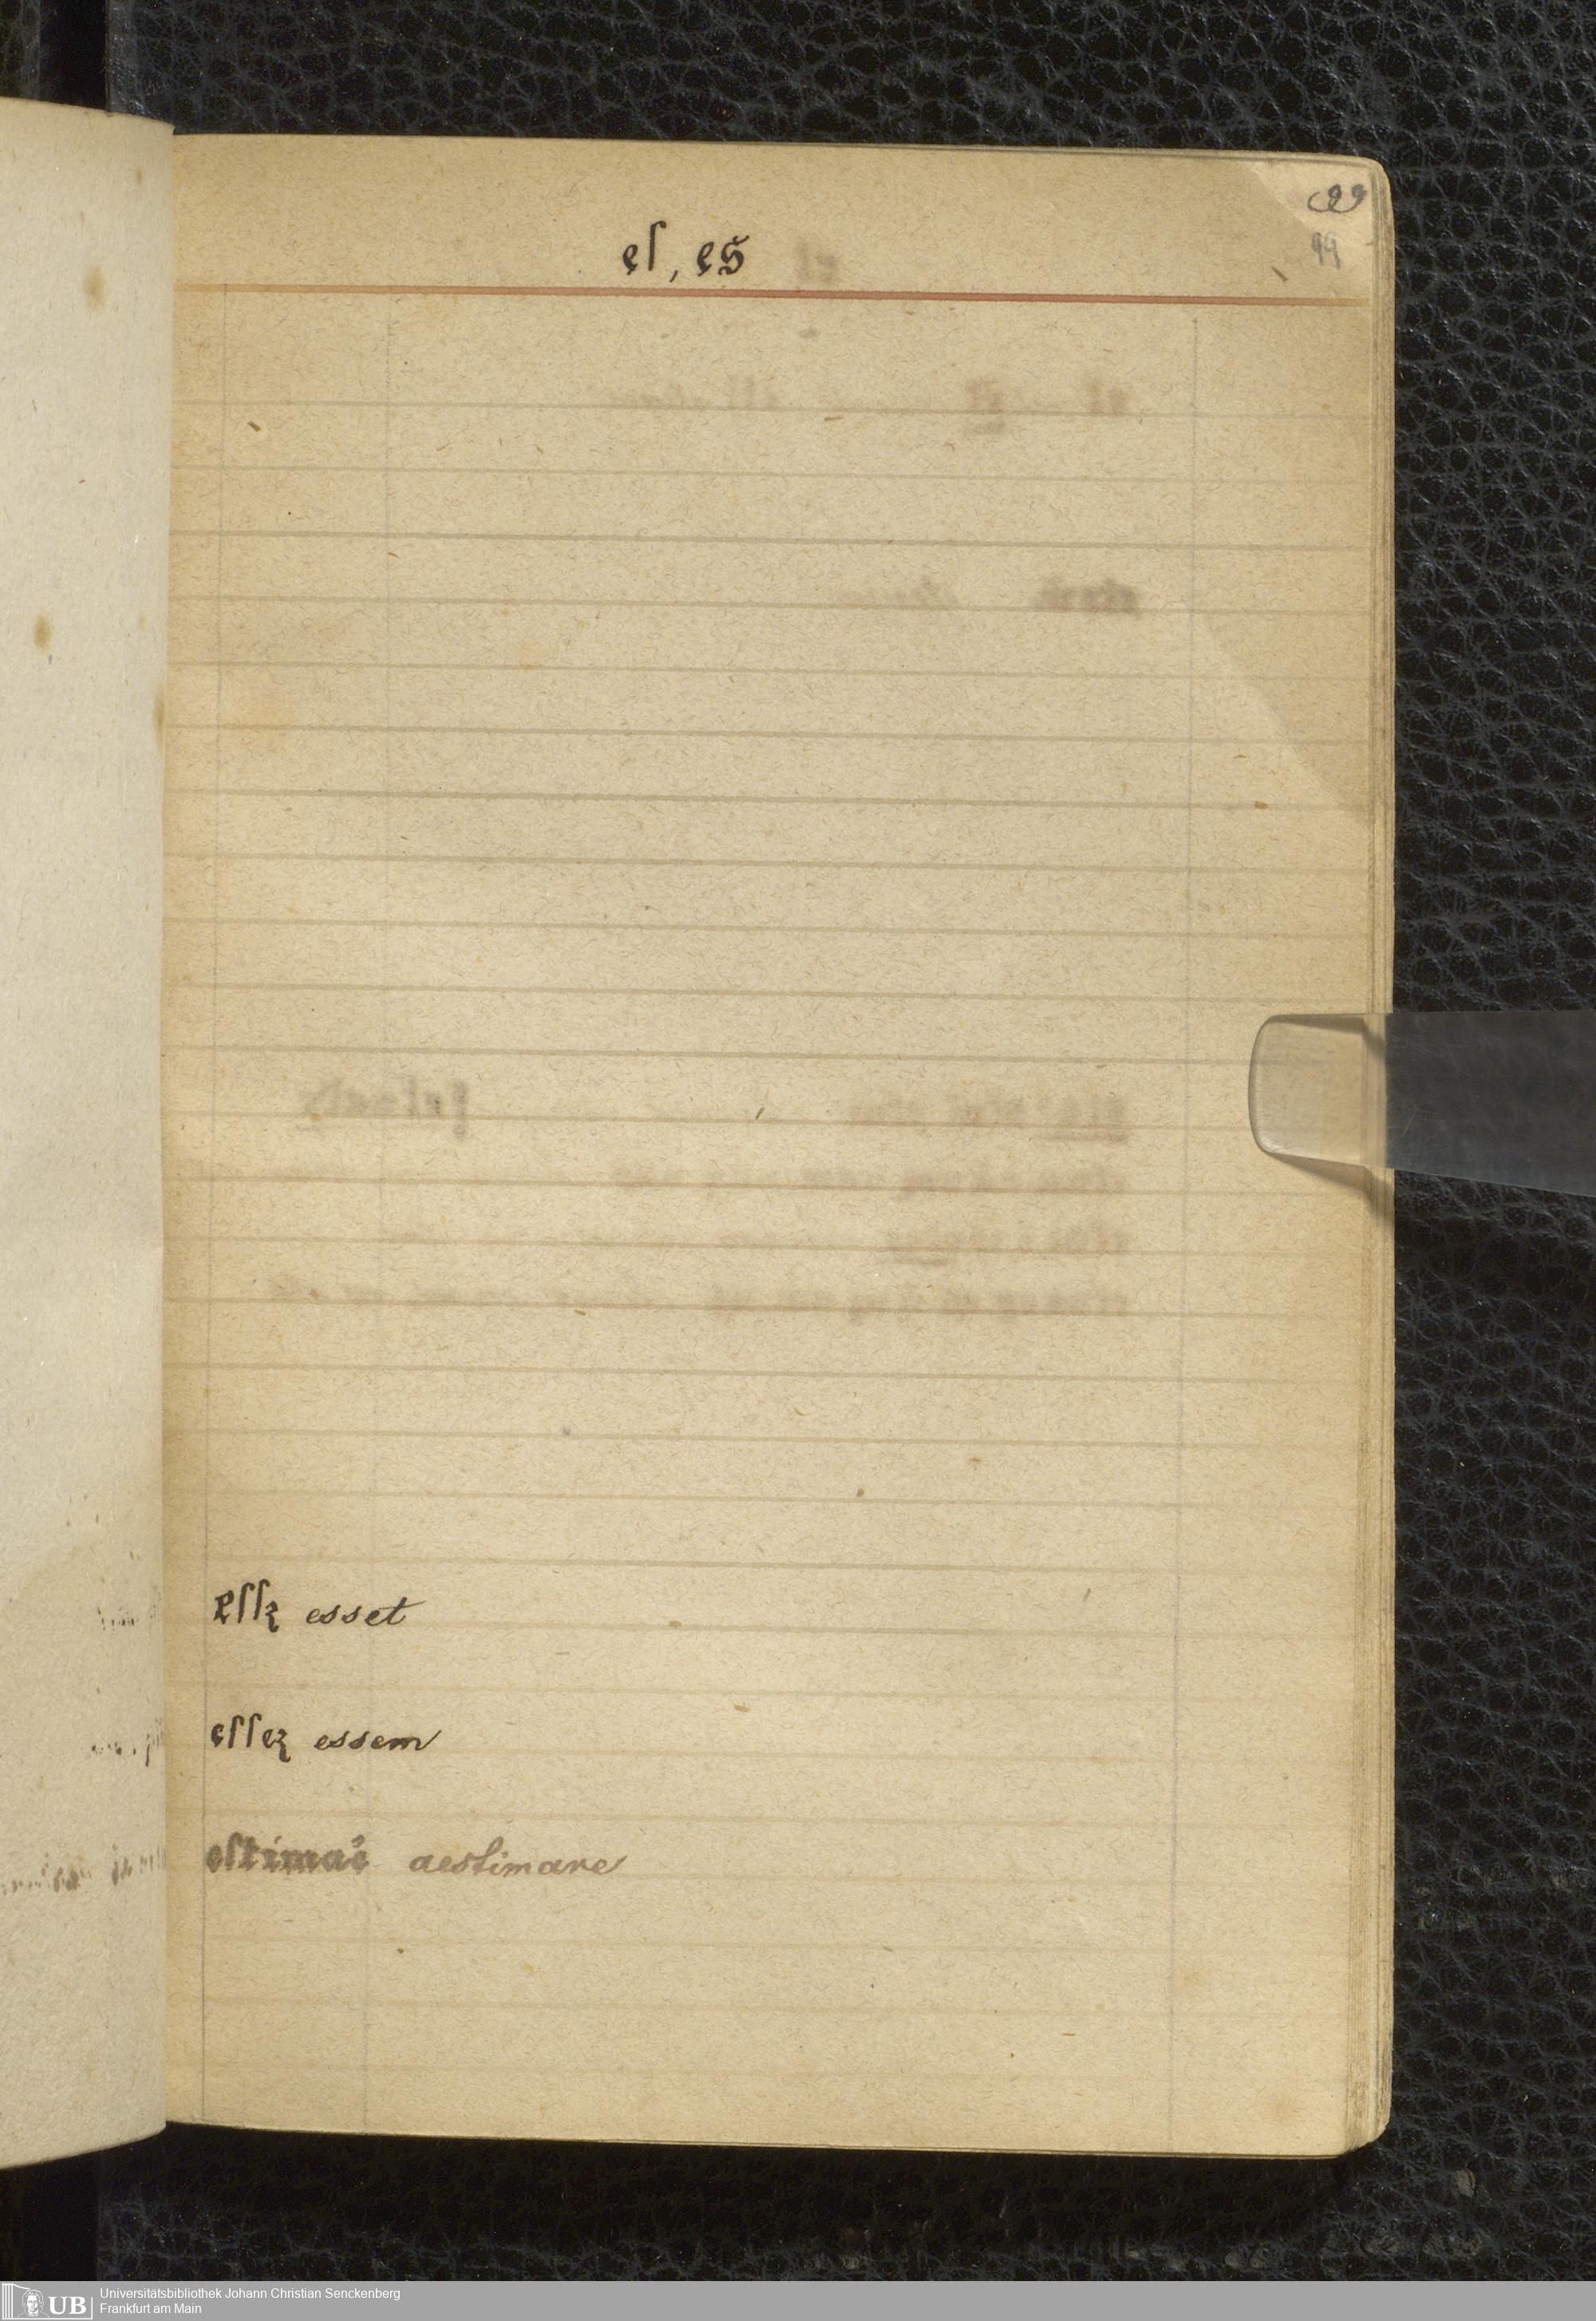 99
eſ, es̄
eſſꝫ esset
eſſeꝫ essem
eſtimać aestimare
UB Universitätsbibliothek Johann Christian Senckenberg
Frankfurt am Main